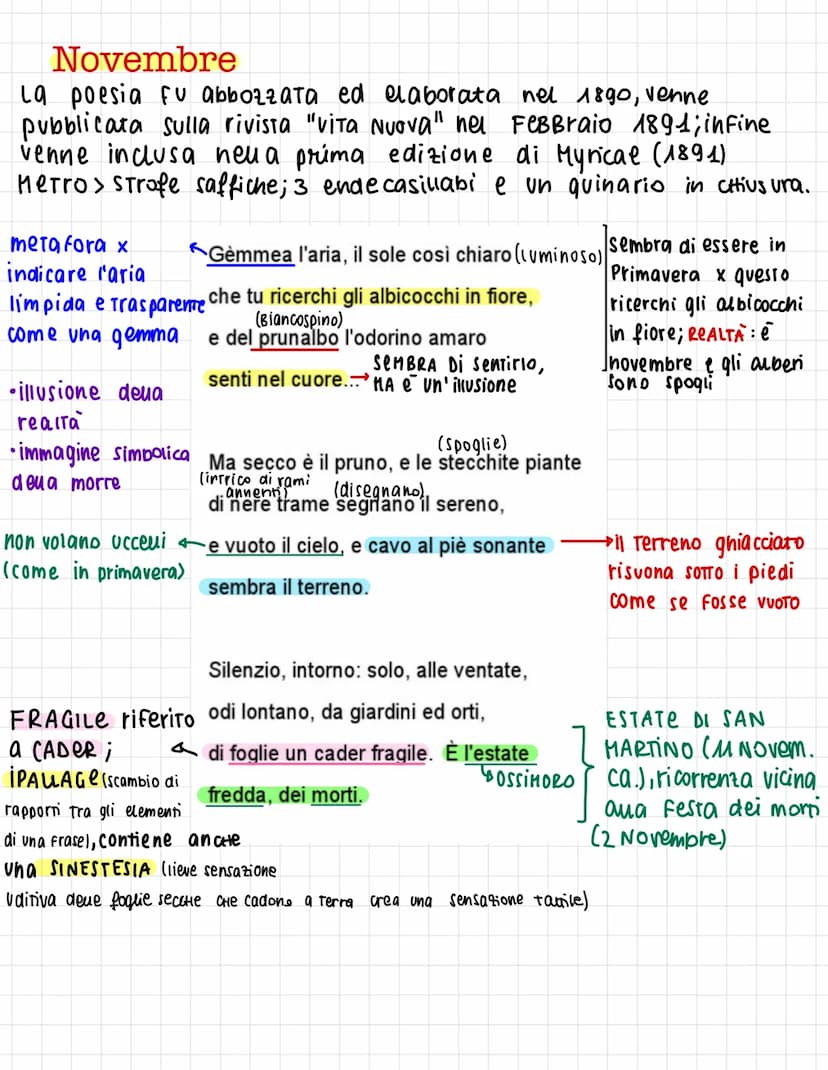 Novembre
La poesia fu abbozzata ed elaborata nel 1890, venne
pubblicata sulla rivista "vita Nuova" nel Febbraio 1891; infine
venne inclusa nella prima edizione di Myricae (1891)
Metro > strofe saffiche; 3 endecasillabi e un quinario in chiusura.
metafora x
indicare l'aria
limpida e trasparente
come una gemma
Gèmmea l'aria, il sole così chiaro (luminoso)
che tu ricerchi gli albicocchi in fiore,
(Biancospino)
e del prunalbo l'odorino amaro
senti nel cuore...
sembra di sentirlo,
ma è un'illusione
Sembra di essere in
Primavera x questo
ricerchi gli albicocchi
in fiore; REALTÀ: è
novembre e gli alberi
sono spogli
•illusione della
realtà
•immagine simbolica
della morte
(spoglie)
Ma secco è il pruno, e le stecchite piante
(intrico di rami
annenti) (disegnano)
di nere trame segnano il sereno,
e vuoto il cielo, e cavo al piè sonante
sembra il terreno.
non volano uccelli
(come in primavera)
il terreno ghiacciato
risuona sotto i piedi
come se fosse vuoto
Silenzio, intorno: solo, alle ventate,
odi lontano, da giardini ed orti,
di foglie un cader fragile. È l'estate
fredda, dei morti.
OSSIMORO
FRAGILE riferito
a CADER;
IPALLAGE (scambio di
rapporti tra gli elementi
di una frase), contiene anche
una SINESTESIA (lieve sensazione
uditiva delle foglie secche che cadono a terra crea una sensazione tattile)
ESTATE DI SAN
MARTINO (11 NOVEM.
ca.), ricorrenza vicina
alla festa dei morti
(2 Novembre)